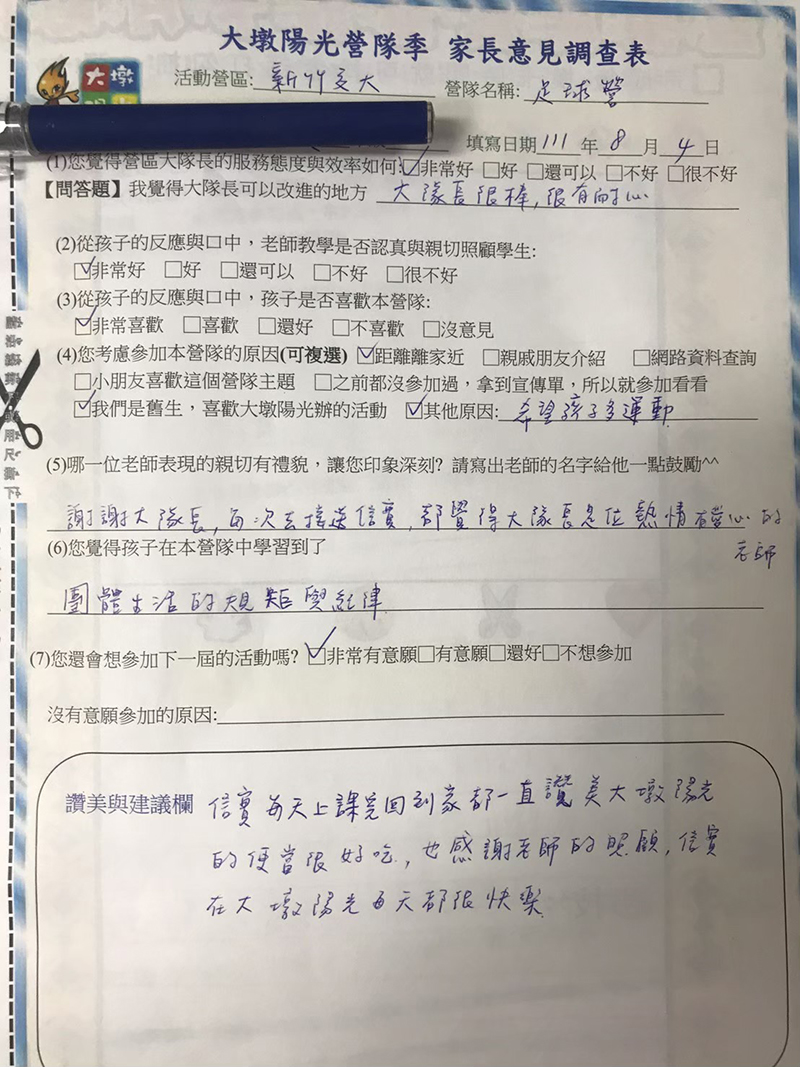 大墩陽光營隊季 家長意見調查表
大墩
活動營區: 新竹交大 營隊名稱: 足球營
填寫日期 111 年 8 月 4 日
(1)您覺得營區大隊長的服務態度與效率如何: ☑非常好 □好 □還可以 □不好 □很不好
【問答題】我覺得大隊長可以改進的地方 大隊長很棒, 很有耐心
(2)從孩子的反應與口中，老師教學是否認真與親切照顧學生:
☑非常好 □好 □還可以 □不好 □很不好
(3)從孩子的反應與口中，孩子是否喜歡本營隊:
☑非常喜歡 □喜歡 □還好 □不喜歡 □沒意見
(4)您考慮參加本營隊的原因(可複選) ☑距離離家近 □親戚朋友介紹 □網路資料查詢
□小朋友喜歡這個營隊主題 □之前都沒參加過，拿到宣傳單，所以就參加看看
☑我們是舊生，喜歡大墩陽光辦的活動 ☑其他原因: 希望孩子多運動
(5)哪一位老師表現的親切有禮貌，讓您印象深刻? 請寫出老師的名字給他一點鼓勵^^
謝謝大隊長, 每次去接送信實, 都覺得大隊長是位熱情有愛心的
老師
(6)您覺得孩子在本營隊中學習到了
團體生活的規矩與紀律
(7)您還會想參加下一屆的活動嗎? ☑非常有意願□有意願□還好□不想參加
沒有意願參加的原因:
讚美與建議欄 信實每天上課完回到家都一直讚美大墩陽光
的便當很好吃, 也感謝老師的照顧, 信實
在大墩陽光每天都很快樂